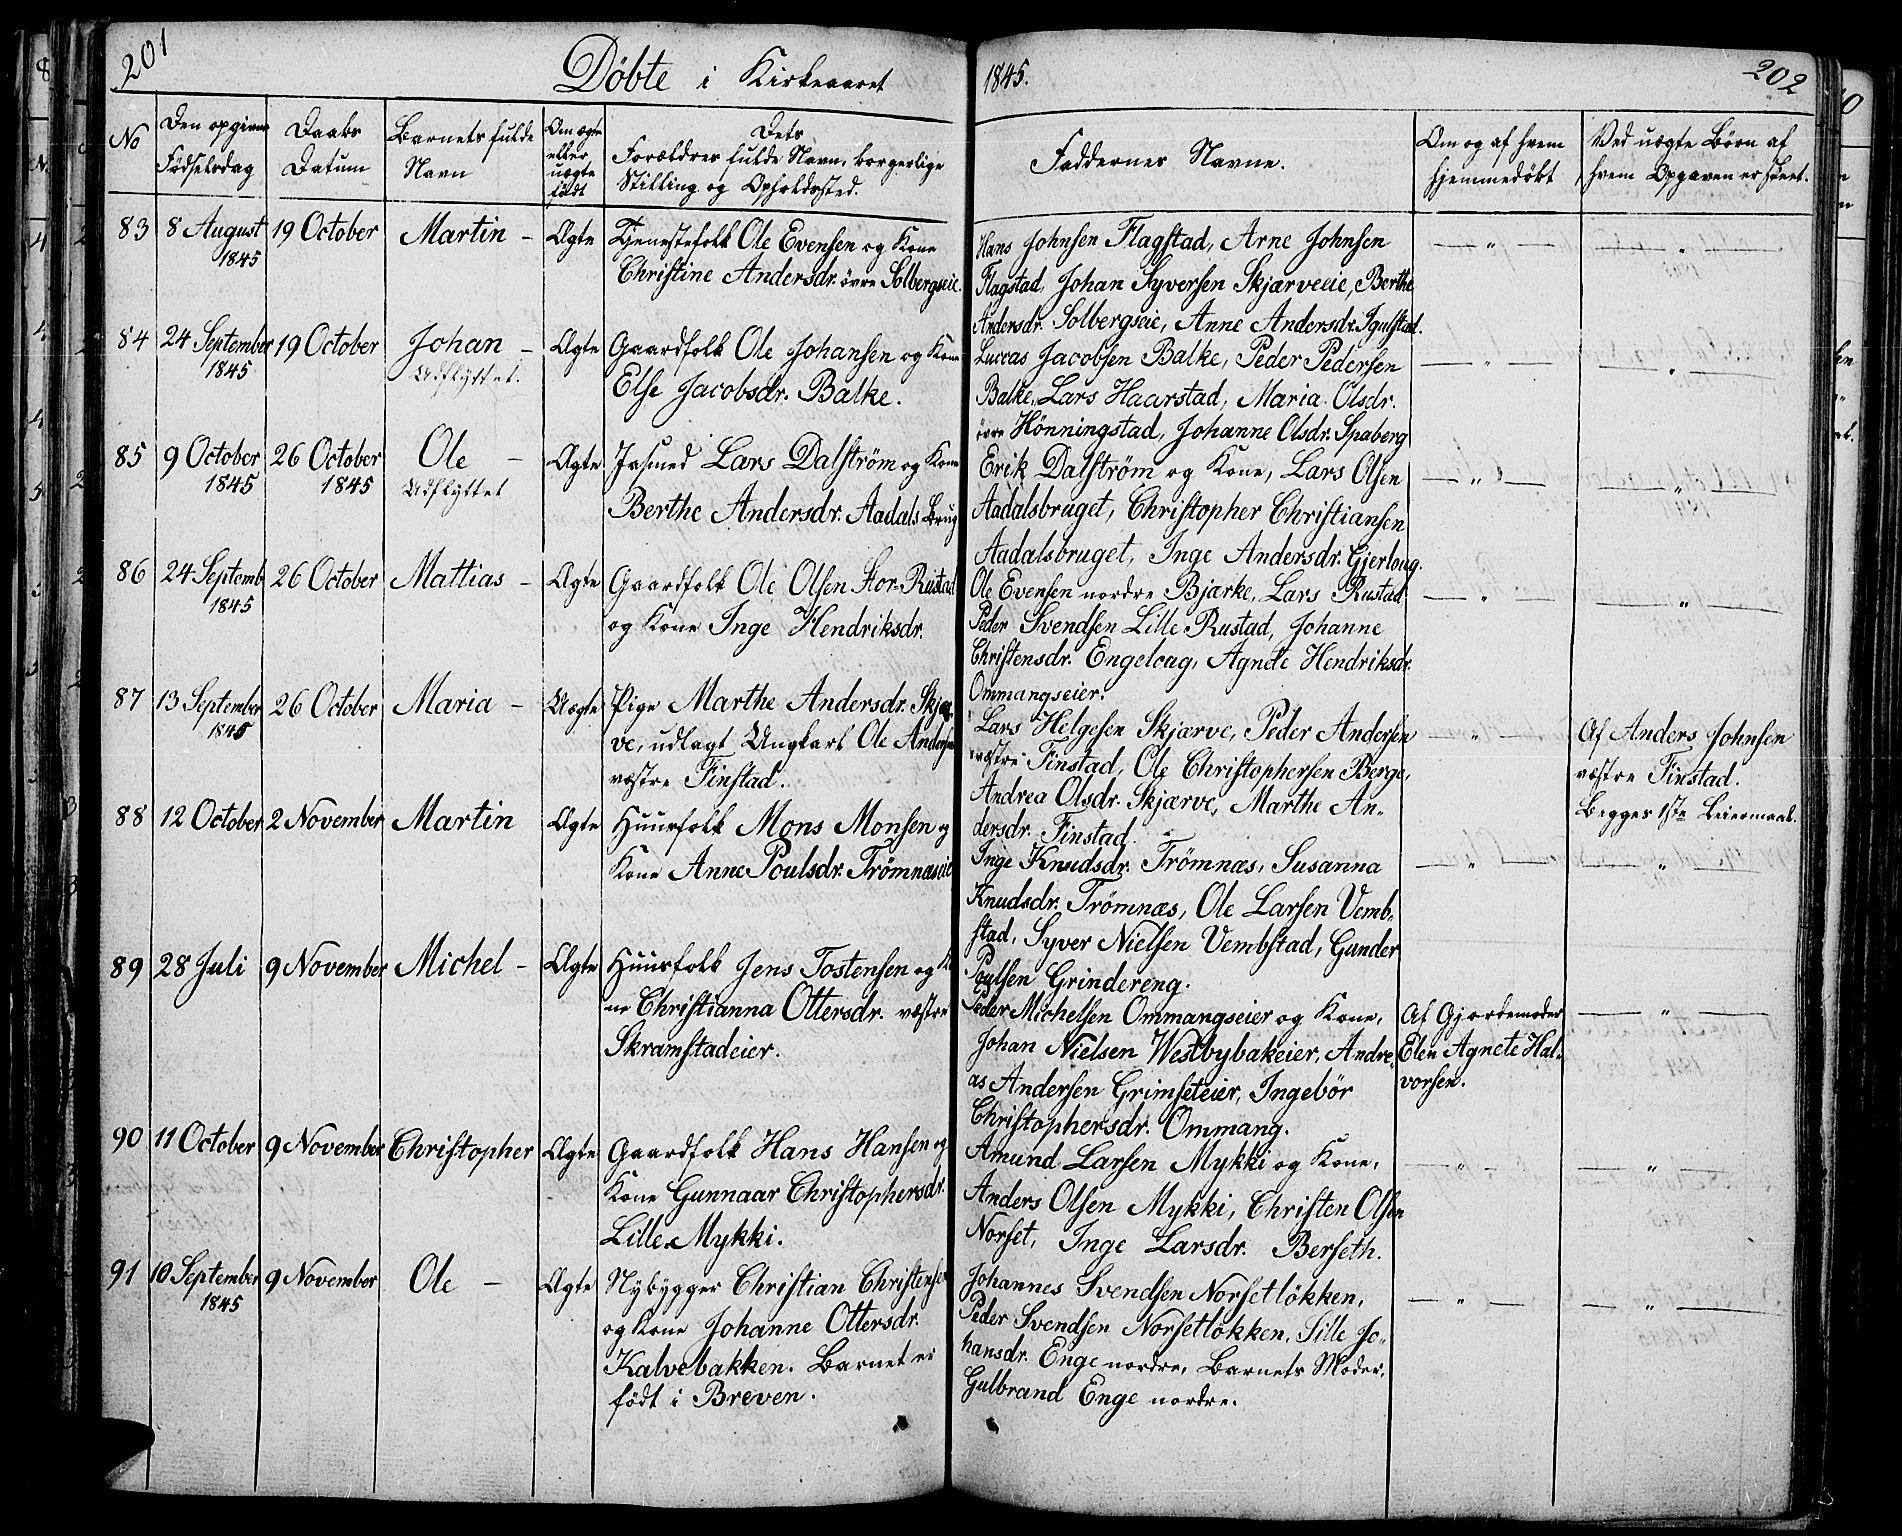 201
Döbte i Kirkeaaret
1845.
202
No
Den opgivne
Födselsdag
Daabs
Datum
Barnets fulde
Navn
Om ægte
eller
uægte
födt
Dets
Forældres fulde Navn, borgerlige
Stilling og Opholdssted.
Faddernes Navne.
Om og af hvem
hjemmedöbt
Ved uægte Börn af
hvem Opgaven er skeet.
83 8 August 19 October Martin – Ægte Tjenestefolk Ole Evensen og Kone
1845 Christine Andersdr. övre Solbergseie.
Hans Johnsen Flagstad, Arne Johnsen
Flagstad, Johan Syversen Skjærveeie, Berthe
Andersdr. Solbergseie, Anne Andersdr. Igulstad.
— " — — " —
84 24 September 19 October Johan – Ægte Gaardfolk Ole Johansen og Kone
1845 Udflyttet. Else Jacobsdr. Balke.
Luccas Jacobsen Balke, Peder Pedersen
Balke, Lars Haarstad, Maria Olsdr.
övre Hönningstad, Johanne Olsdr. Spaberg
— " — — " —
85 9 October 26 October Ole – Ægte Insmed Lars Dalström og Kone
1845 1845 Udflyttet Berthe Andersdr. Aadals Brug
Erik Dalström og Kone, Lars Olsen
Aadalsbruget, Christopher Christiansen
Aadalsbruget, Inge Andersdr. Gjerloug.
— " — — " —
86 24 Septemb 26 October Mattias – Ægte Gaardfolk Ole Olsen Stor-Rustad
1845 og Kone Inge Hendriksdr.
Ole Evensen nordre Bjærke, Lars Rustad
Peder Svendsen Lille Rustad, Johanne
Christensdr. Engeloug, Agnete Hendriksdr.
Ommangseier.
— " — — " —
87 13 September 26 October Maria – Uægte Pige Marthe Andersdr. Skjær-
1845 ve, udlagt Ungkarl Ole Andersen
væstre Finstad.
Lars Helgesen Skjærve, Peder Andersen
væstre Finstad, Ole Christophersen Berge,
Andrea Olsdr. Skjærve, Marthe An-
dersdr. Finstad.
— " —
Af Anders Johnsen
væstre Finstad.
Begges 1ste Leiermaal.
88 12 October 2 November Martin Ægte Huusfolk Mons Monsen og
Kone Anne Poulsdr. Trömnæseie
Inge Knudsdr. Trömnæs, Susanna
Knudsdr. Trömnæs, Ole Larsen Vemb-
stad, Syver Nielsen Vembstad, Gunder
Poulsen Grindereng.
— " — — " —
89 28 Juli 9 November Michel – Ægte Huusfolk Jens Tostensen og Ko
ne Christianna Ottersdr. væstre
Skramstadeier.
Peder Michelsen Ommangseier og Kone,
Johan Nielsen Westbybakeier, Andre-
as Andersen Grimseteier, Ingebör
Christophersdr. Ommang.
Af Gjordemoder
Elen Agnete Hal-
vorsen.
— " —
90 11 October 9 November Christopher Ægte Gaardfolk Hans Hansen og
Kone Gunnaar Christophersdr.
Lille Mykki.
Amund Larsen Mykki og Kone,
Anders Olsen Mykki, Christen Olsen
Norset, Inge Larsdr. Berseth.
— " — — " —
91 10 September 9 November Ole – Ægte Nybygger Christian Christensen
1845 og Kone Johanne Ottersdr.
Kalvebakken. Barnet er
födt i Breven.
Johannes Svendsen Norsetlökken,
Peder Svendsen Norsetlökken, Sille Jo-
hansdr. Enge nordre, Barnets Moder,
Gulbrand Enge nordre.
— " — — " —